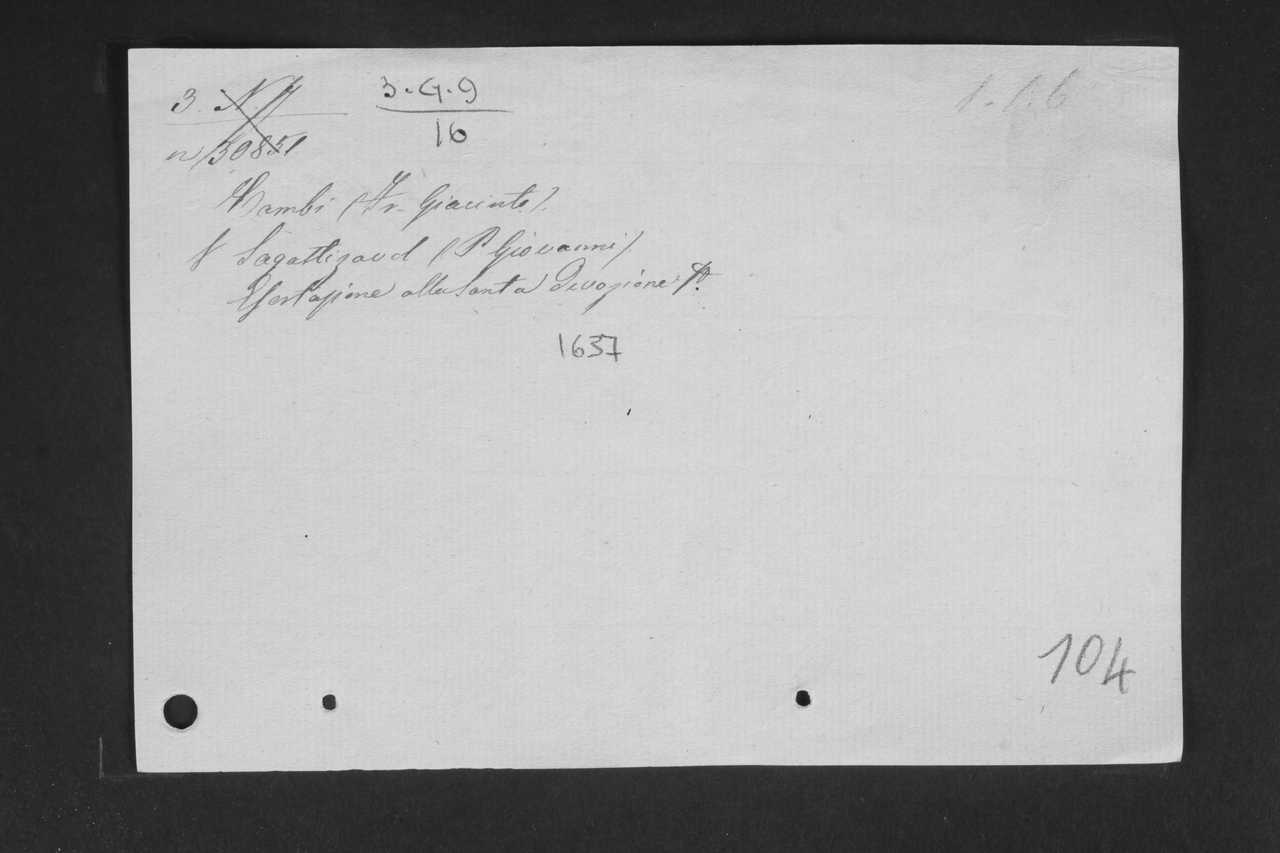 3. N. 4
3.G.9
16
1.1.6
n 30851
Bambi (Fr. Giacinto).
V Sagastizaud (P. Giovanni)
Esortazione alla Santa Devozione
1637
104